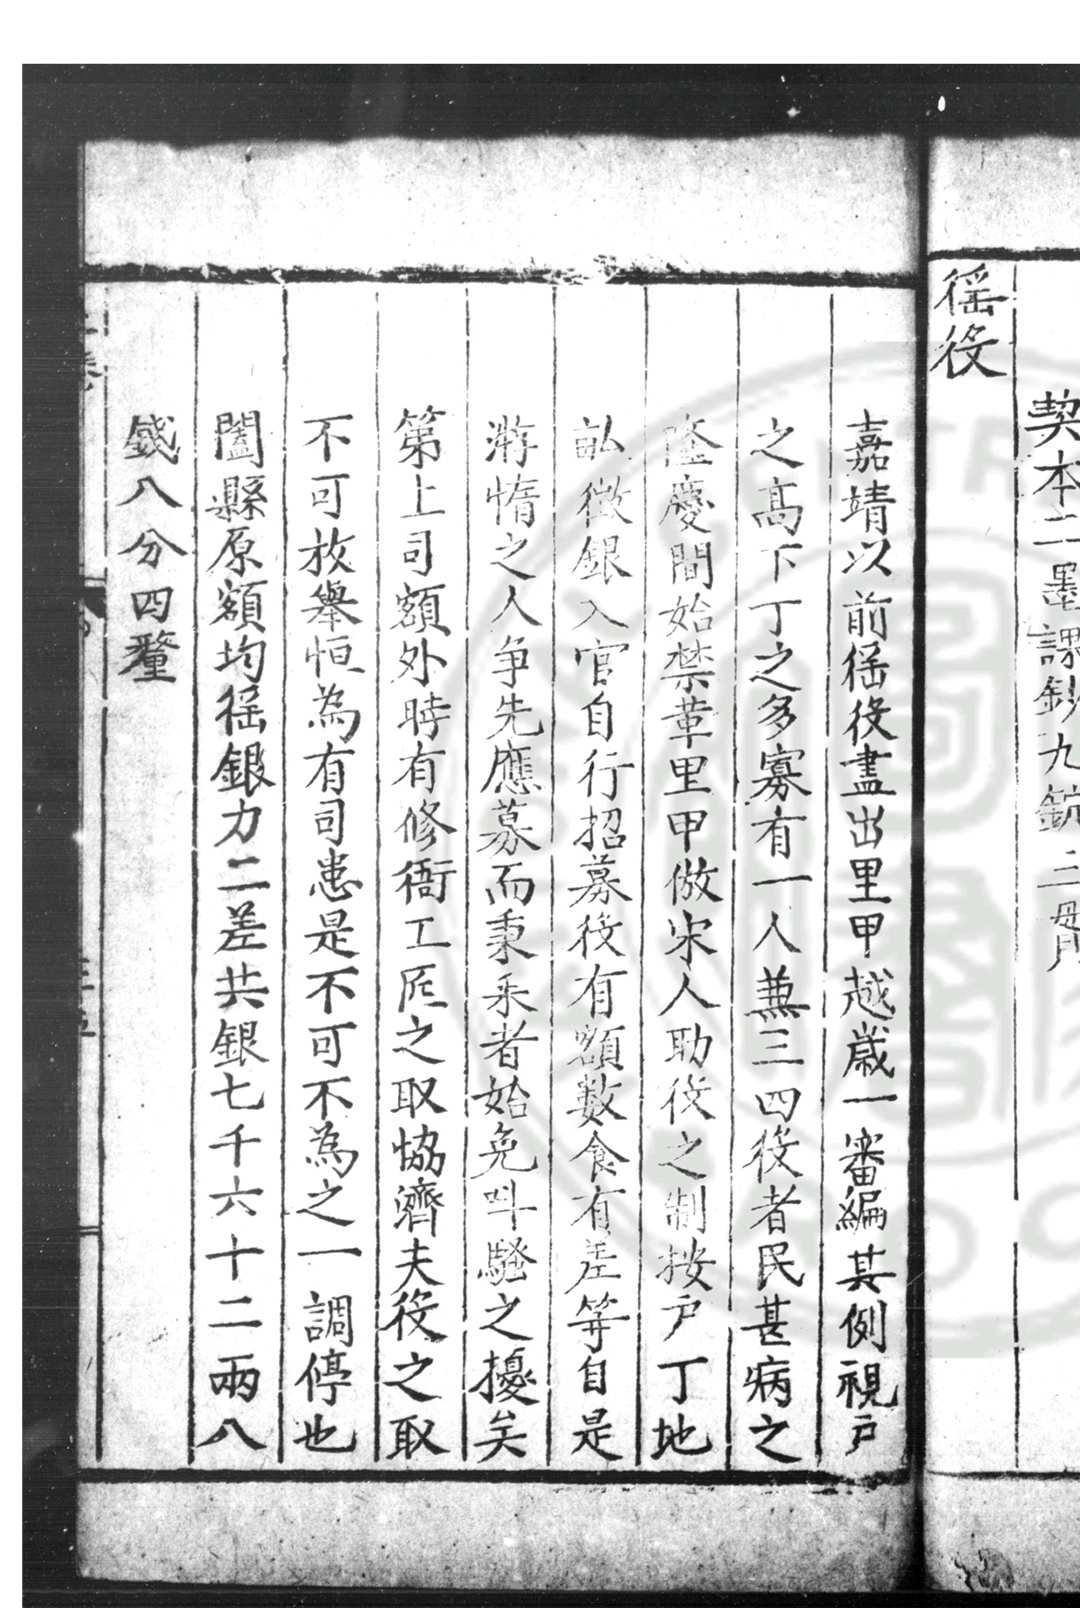 契本二墨課鈔九錠三貫
徭役
嘉靖以前徭役盡出里甲越歲一審編其例視戶
之髙下丁之多寡有一人兼三四役者民甚病之
隆慶間始禁革里甲倣宋人助役之制按戶丁地
畝徵銀入官自行招募役有額數食有差等自是
游惰之人争先應募而秉耒者始免呌騷之擾矣
第上司額外時有修衙工匠之取協濟夫役之取
不可放舉恒為有司患是不可不為之一調停也
闔縣原額均徭銀力二差共銀七千六十二兩八
錢八分四釐